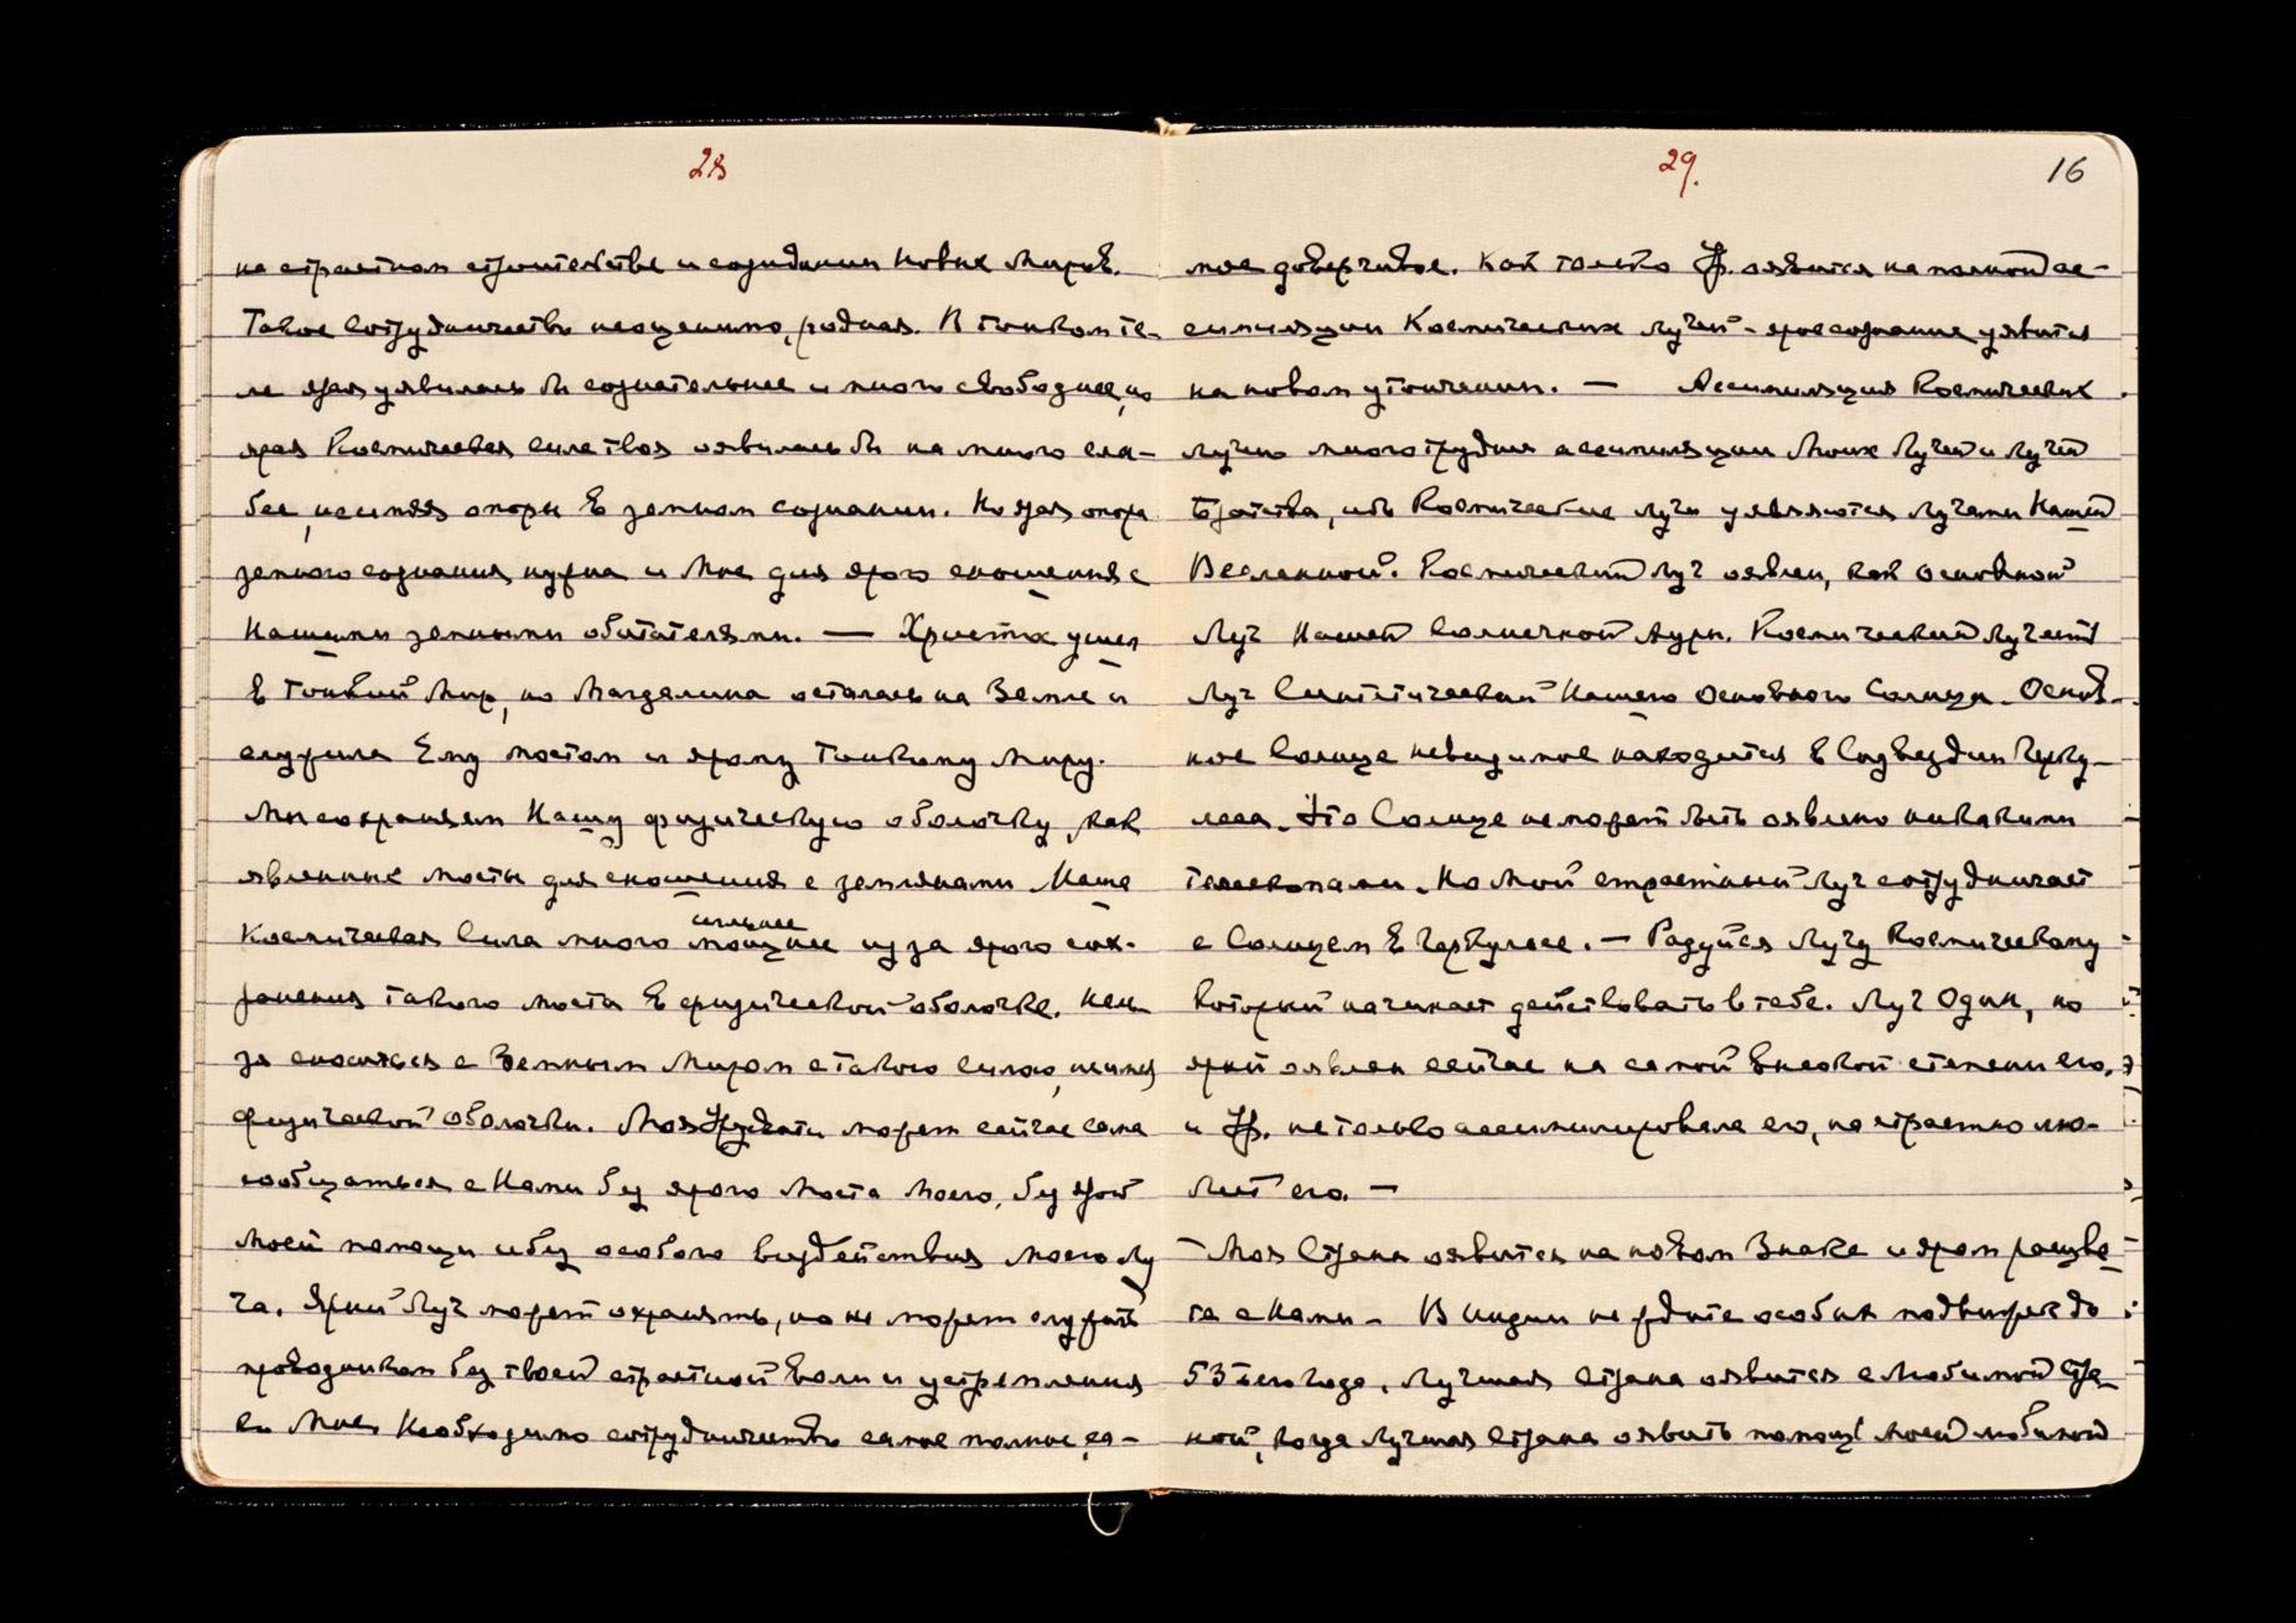 28
на страстном строительстве и созидании Новых Миров.
Такое Сотрудничество неоценимо, родная. В тонком те-
ле ярая уявилась бы сознательнее и много свободнее, но
ярая Космическая сила твоя оявилась бы на много сла-
бее, не имея опоры в земном сознании. Но ярая опора
земного сознания нужна и Мне для ярого сношения с
Нашими земными обитателями. — Христос ушел
в Тонкий Мир, но Магдалина осталась на Земле и
служила Ему мостом и ярому Тонкому Миру.
Мы сохраняем Нашу физическую оболочку, как
явленных мосты для сношения с землянами. Наша
Космическая Сила много мощнее из за ярого сох-
сильнее
ранения такого моста в физической оболочке. Нель
зя сноситься с Земным Миром с такою силою, не имея
физической оболочки. Моя может сейчас сама
сообщаться с Нами без ярого Моста Моего, без ярой
Моей помощи и без особого воздействия Моего Лу
ча. Ярый Луч может охранять, но не может служить
проводником без твоей страстной воли и устремления
ко Мне. Необходимо сотрудничество самое полное, са-
29.
16
мое доверчивое. Как только оявится на полной ас-
симиляции Космических лучей - ярое сознание уявится
на новом утончении. — Ассимиляция Космических
лучей много труднее ассимиляции Моих Лучей и Лучей
Братства, ибо Космические лучи уявляются лучами Нашей
Вселенной. Космический луч оявлен, как основной
Луч Нашей Солнечной Ауры. Космический луч есть
Луч Синтетический Нашего Основного Солнца. Основ-
ное Солнце невидимое находится в Созвездии Герку-
леса. Это Солнце не может быть оявлено никакими
телескопами. Но Мой страстный Луч сотрудничает
с Солнцем в Геркулесе. — Радуйся Лучу Космическому
который начинает действовать в тебе. Луч Один, но
ярый оявлен сейчас на самой высокой степени его,
и не только ассимилировала его, но страстно лю-
бит его. —
— Моя Страна оявится на новом Знаке и яром расцве
те с Нами - В Индии не ждите особых до
53 его года. Лучшая страна оявится с Любимой стра
ной, когда лучшая страна оявит помощь Моей любимой